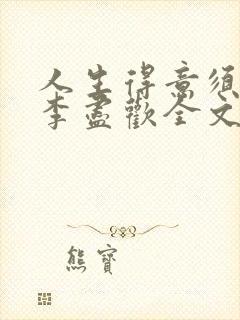 人生得意須
李盡歡全文
熊寶